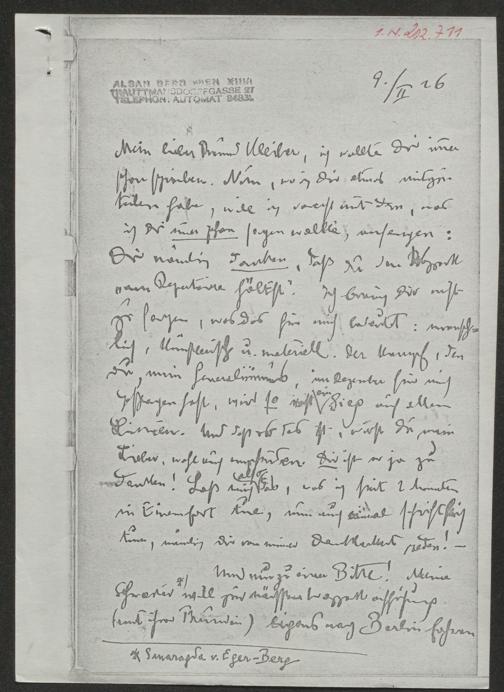 1.N.212.711
ALBAN BERG WIEN XIII/1
TRAUTTMANSDORFFGASSE 27
TELEPHON: AUTOMAT 84831
9./II 26
Mein lieber Freund Kleiber, ich wollte Dir immer
schon schreiben. Nun, wo ich Dir etwas mitzu-
teilen habe, will ich zuerst mit dem, was
ich Dir immer schon sagen wollte, anfangen:
Dir nämlich danken, daß Du den Wozzeck
am Repertoire hältst. Ich brauch Dir nicht
zu sagen, was das für mich bedeutet: mensch-
lich, künstlerisch u. materiell. Der Kampf, den
Du, mein Generalissimus, im Dezember für mich
geschlagen hast, wird so ein Sieg auf allen
Linien. Und daß es das ist, wirst Du mein
Lieber, wohl auch empfinden. Dir ist es ja zu
danken! Laß mich das, was ich seit 2 Monaten
in tue, nun auch einmal schriftlich
tun, nämlich Dir von meiner Dankbarkeit reden! —
Und nun zu einer Bitte! Meine
Schwester *) will zur nächsten Wozzeckaufführung
(mit ihrer Freundin) eigens nach Berlin fahren
*) Smaragda v. Eger-Berg